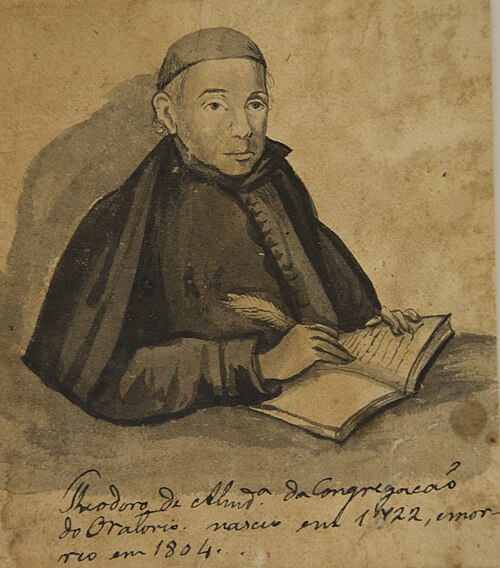 Theodoro de Almd.ª da Congregacaõ
do Oratorio. nasceu em 1722, emor-
reo em 1804..